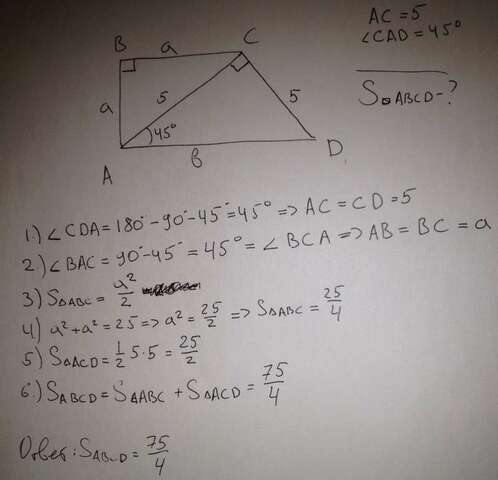 AC = 5
∠CAD = 45°
SABCD - ?
B a C
a 5 5
45°
A в D
1.) ∠CDA = 180° - 90° - 45° = 45° => AC = CD = 5
2.) ∠BAC = 90° - 45° = 45° = ∠BCA => AB = BC = a
3) S△ABC = a²/2
4) a² + a² = 25 => a² = 25/2 => S△ABC = 25/4
5) S△ACD = 1/2 5·5 = 25/2
6.) SABCD = S△ABC + S△ACD = 75/4
Ответ: SABCD = 75/4